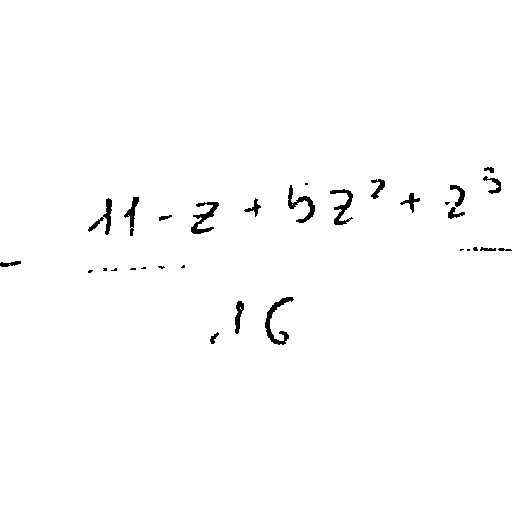 - \frac{11 - z + 5z^2 + z^3}{16}